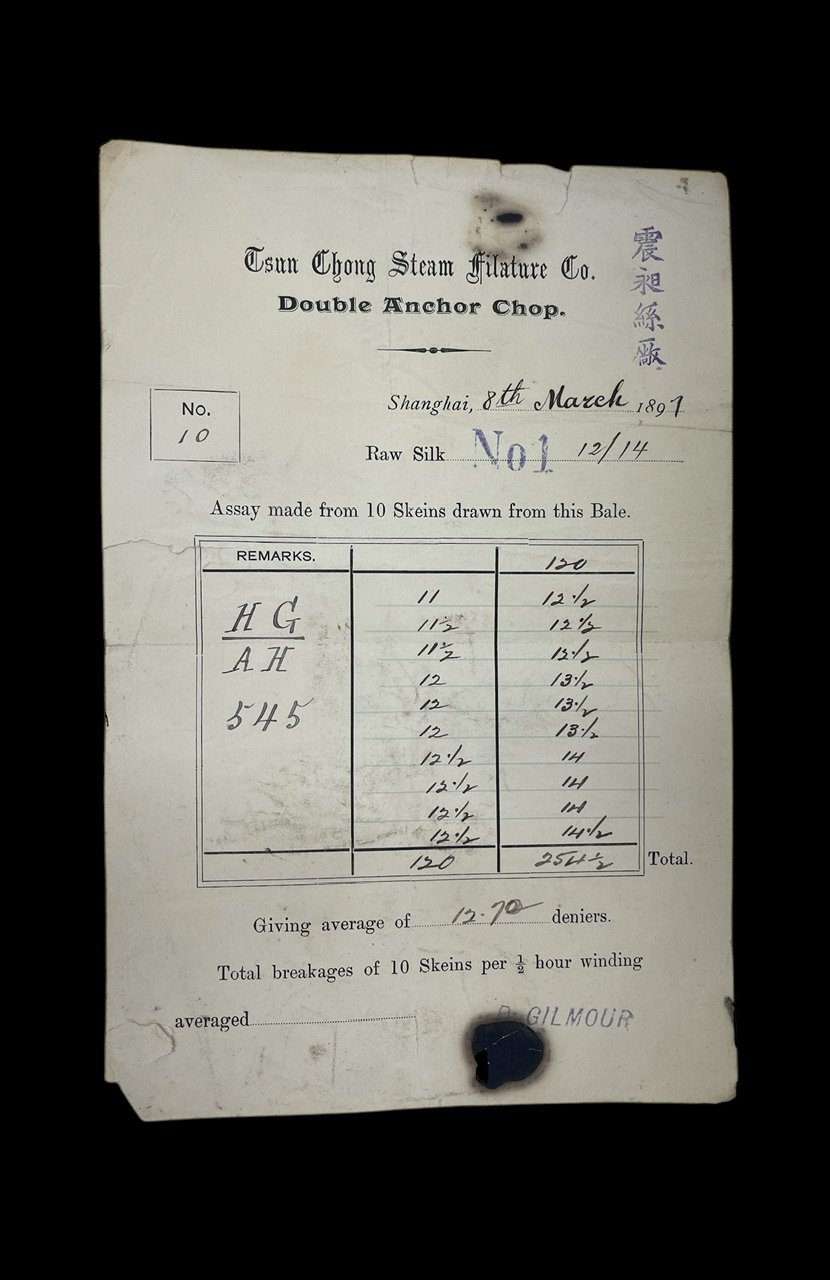 Tsun Chong Steam Filature Co.
Double Anchor Chop.
震昶絲厰
Shanghai, 8th March 1897
No.
10
Raw Silk No1 12/14
Assay made from 10 Skeins drawn from this Bale.
REMARKS. 120
11 12 1/2
H G 11 1/2 12 1/2
A H 11 1/2 12 1/2
12 13 1/2
545 12 13 1/2
12 13 1/2
12 1/2 14
12 1/2 14
12 1/2 14
12 1/2 14 1/2
120 254 1/2 Total.
Giving average of 12.70 deniers.
Total breakages of 10 Skeins per 1/2 hour winding
averaged GILMOUR